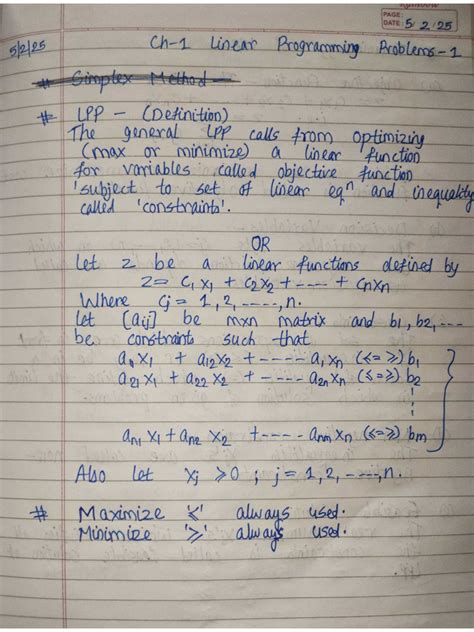 Rainbow
PAGE:
DATE: 5/2/25
5/2/25 Ch-1 Linear Programming Problems-1
# Simplex Method
# LPP - (Definition)
The general LPP calls from optimizing
(max or minimize) a linear function
for variables called objective function
'subject to set of linear eqⁿ and inequality
called 'constraints'.
OR
Let z be a linear functions defined by
z = c₁x₁ + c₂x₂ + ---- + cₙxₙ
Where cj = 1, 2, ----, n.
let [aij] be mxn matrix and b₁, b₂, ---
be constraints such that
a₁₁x₁ + a₁₂x₂ + ---- a₁xₙ (≤ = ≥) b₁
a₂₁x₁ + a₂₂x₂ + ---- a₂ₙxₙ (≤ = ≥) b₂
aₙ₁x₁ + aₙ₂x₂ + ---- aₙₘxₙ (≤ = ≥) bₘ
Also let xj ≥ 0 ; j = 1, 2, ----, n.
# Maximize '≤' always used.
Minimize '≥' always used.